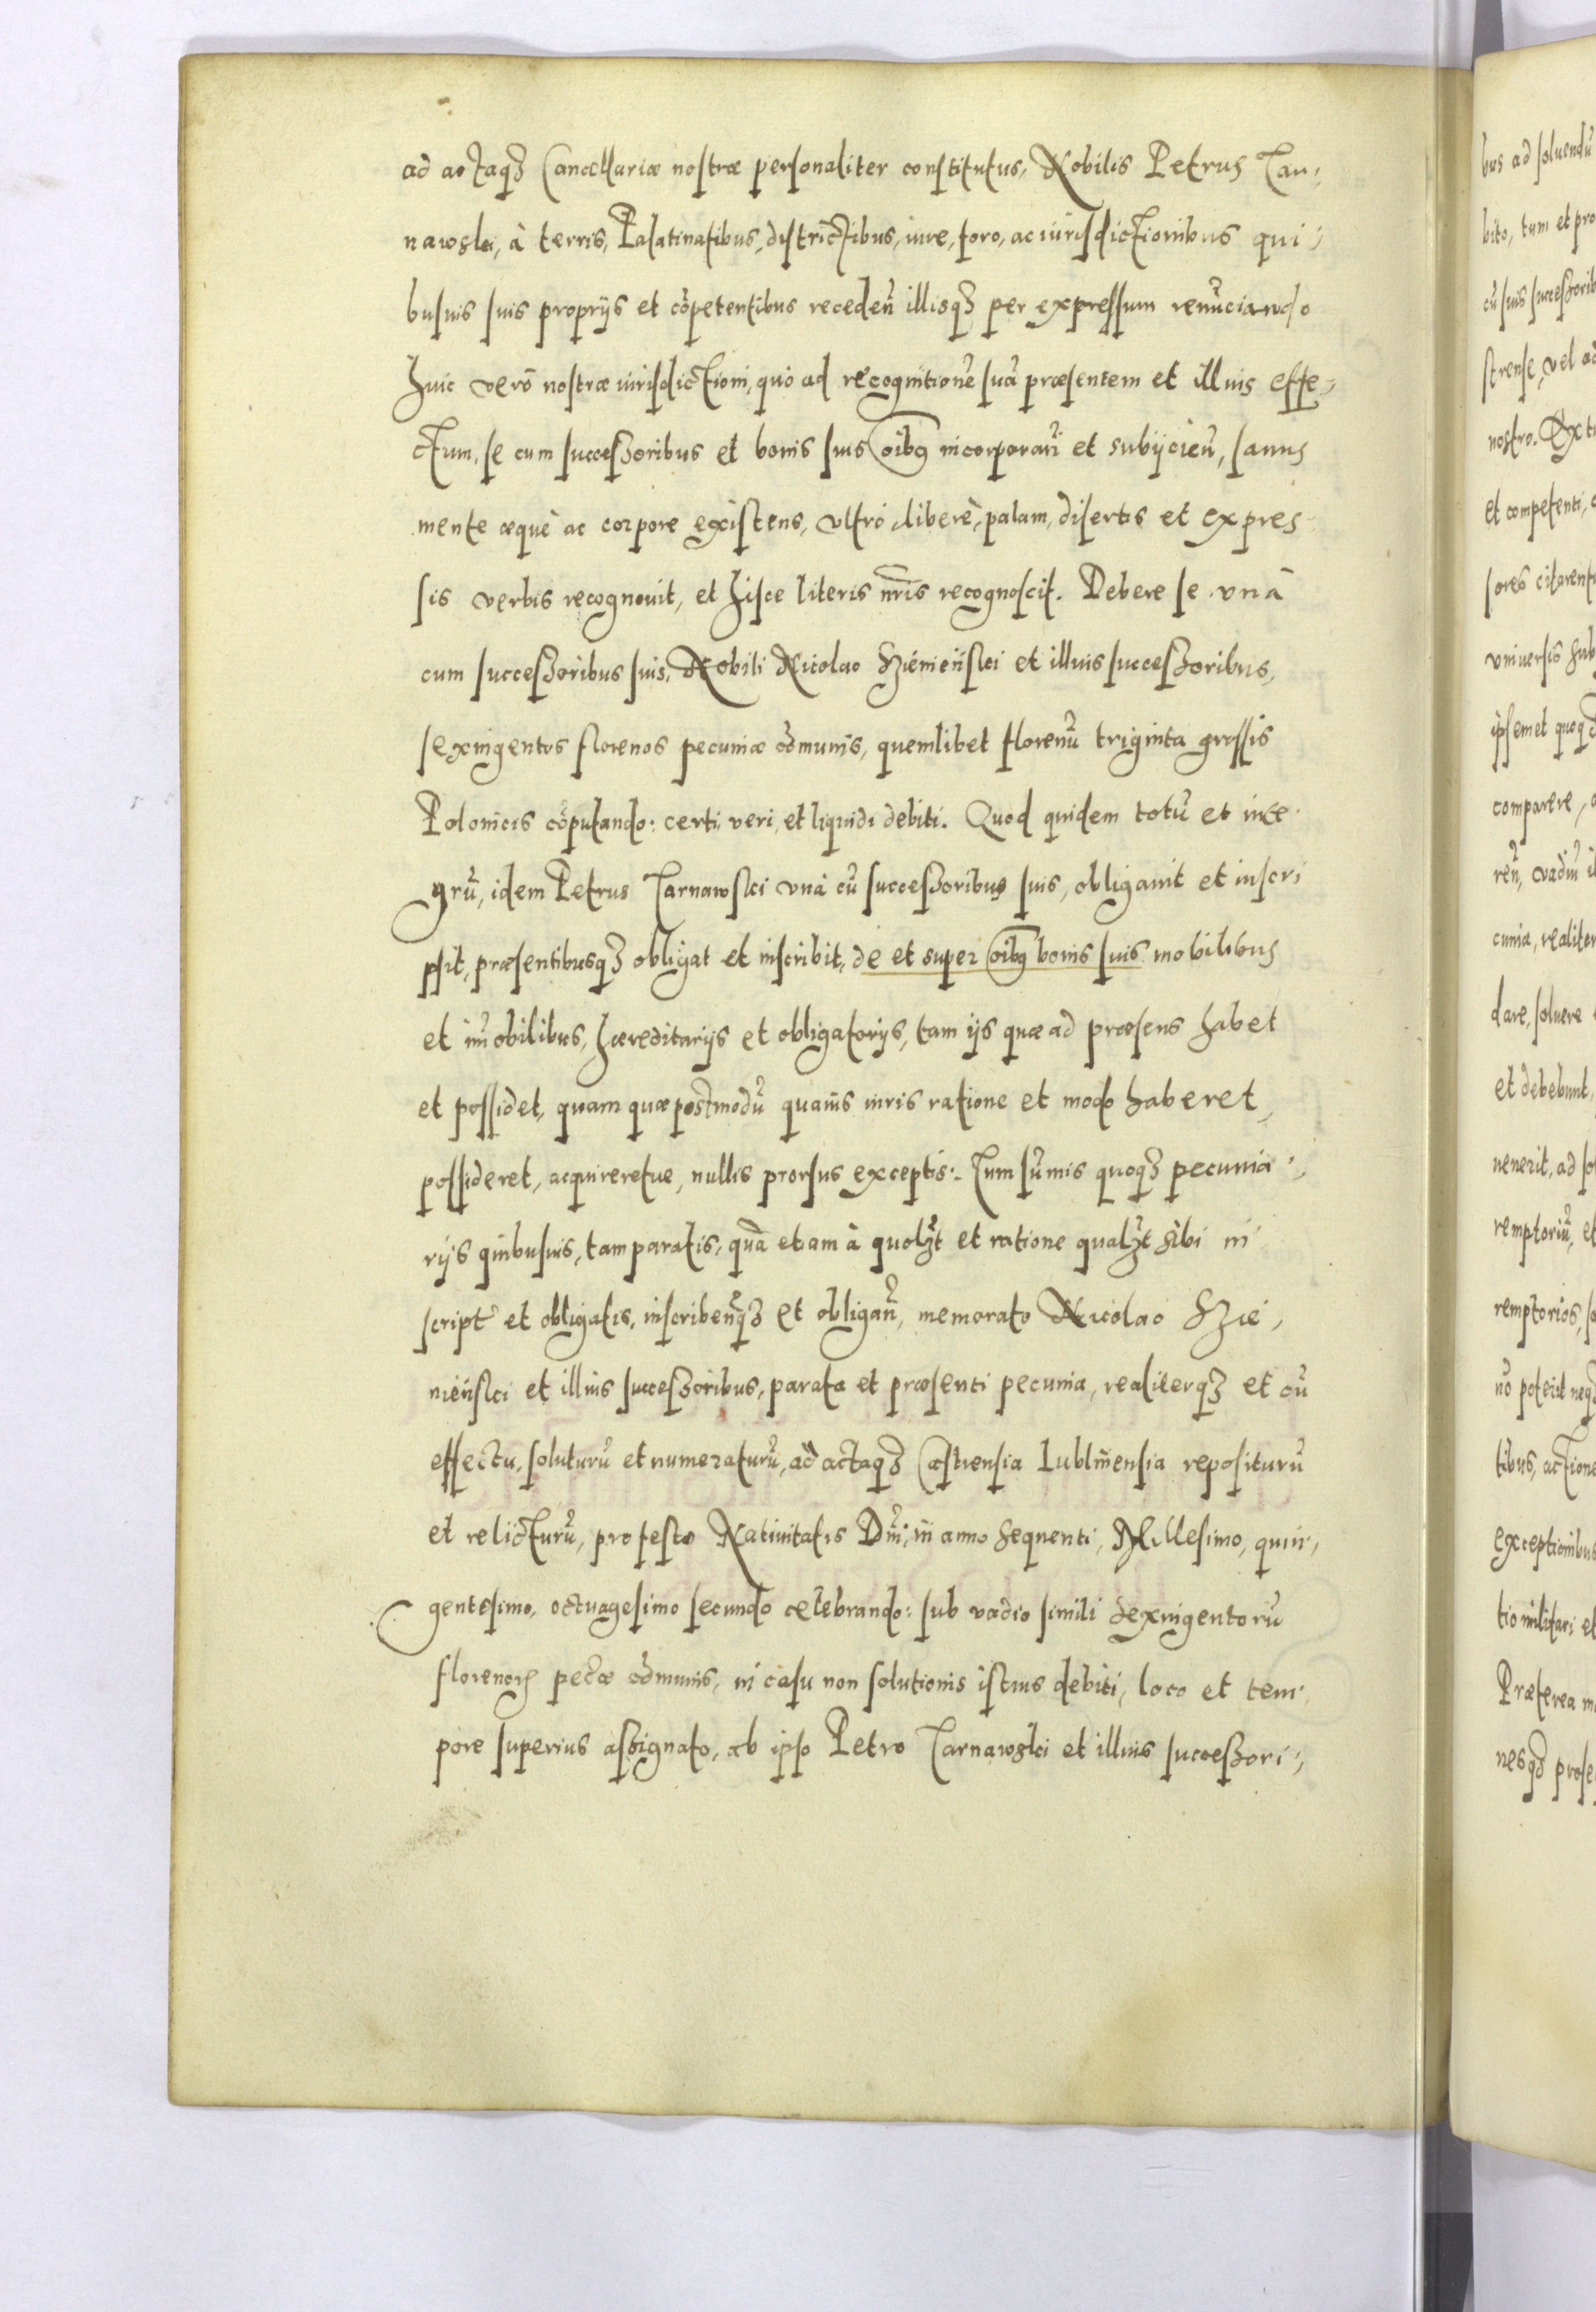 ad actaqꝫ Cancellariæ nostræ personaliter constitutus, Nobilis Petrus Tar,
nawski, à terris, Palatinatibus, districtibus, iure, foro, ac iurisdictionibus qui,
busuis suis proprijs et cōpetentibus recedeñ illisqꝫ per expressum renūciando
huic verò nostræ iurisdictioni, quò ad recognitionē suā præsentem et illius effe,
ctum, se cum successoribus et bonis suis oībꝰ incorporañ et subijcieñ, sanus
mente æquè ac corpore existens, vltrò, liberè, palam, disertis et expres
sis verbis recognouit, et hisce literis nr̄is recognoscit. Debere se vnà
cum successoribus suis, Nobili Nicolao Hzienieński et illius successoribus,
sexingentos florenos pecuniæ cōmunis, quemlibet florenū triginta grossis
Polonicis cōputando: certi, veri, et liquidi debiti. Quod quidem totū et inte
grū, idem Petrus Tarnawski vnà cū successoribus suis, obligauit et inscri
psit, præsentibusqꝫ obligat et inscribit, de et super oībꝰ bonis suis mobilibus
et im̄obilibus, hæreditarijs et obligatorijs, tam ijs quæ ad præsens habet
et possidet, quam quæ postmodū quauis iuris ratione et modo haberet,
possideret, acquireretue, nullis prorsus exceptis: Tum sūmis quoqꝫ pecunia,
rijs quibusuis, tam paratis, quā etiam à quolꝫt et ratione qualꝫt sibi in
script̃ et obligatis, inscribeñqꝫ et obligañ, memorato Nicolao Hzie,
nieński et illius successoribus, parata et præsenti pecunia, realiterqꝫ et cū
effectu, soluturū et numeraturū, ad actaqꝫ Castrensia Lublinensia repositurū
et relicturū, pro festo Natiuitatis Dn̄i, in anno sequenti, Millesimo, quin,
gentesimo, octuagesimo secundo celebrando: sub vadio simili sexingentorū
florenorꝫ pecūæ cōmunis, in casu non solutionis istius debiti, loco et tem,
pore superius assignato, ab ipso Petro Tarnawski et illius successori,
bus ad soluendū
bito, tum et pro
cū suis successorib
strense, vel ad
nostro. Ex t
et competenti,
sores citarent
vniuersis sub
ipsemet quoqꝫ
comparere,
reñ, vadiū il
cunia, realiter
dare, soluere
et debebunt,
uenerit, ad so
remptoriū, et
remptorios, so
nō poterit neqꝫ
tibus, actione
exceptionibus
tio militari et
Præterea
nesqꝫ prose